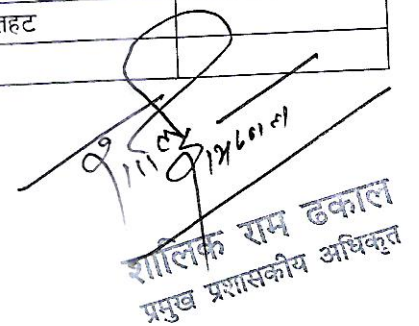 तहट
शालिक राम ढकाल
प्रमुख प्रशासकीय अधिकृत